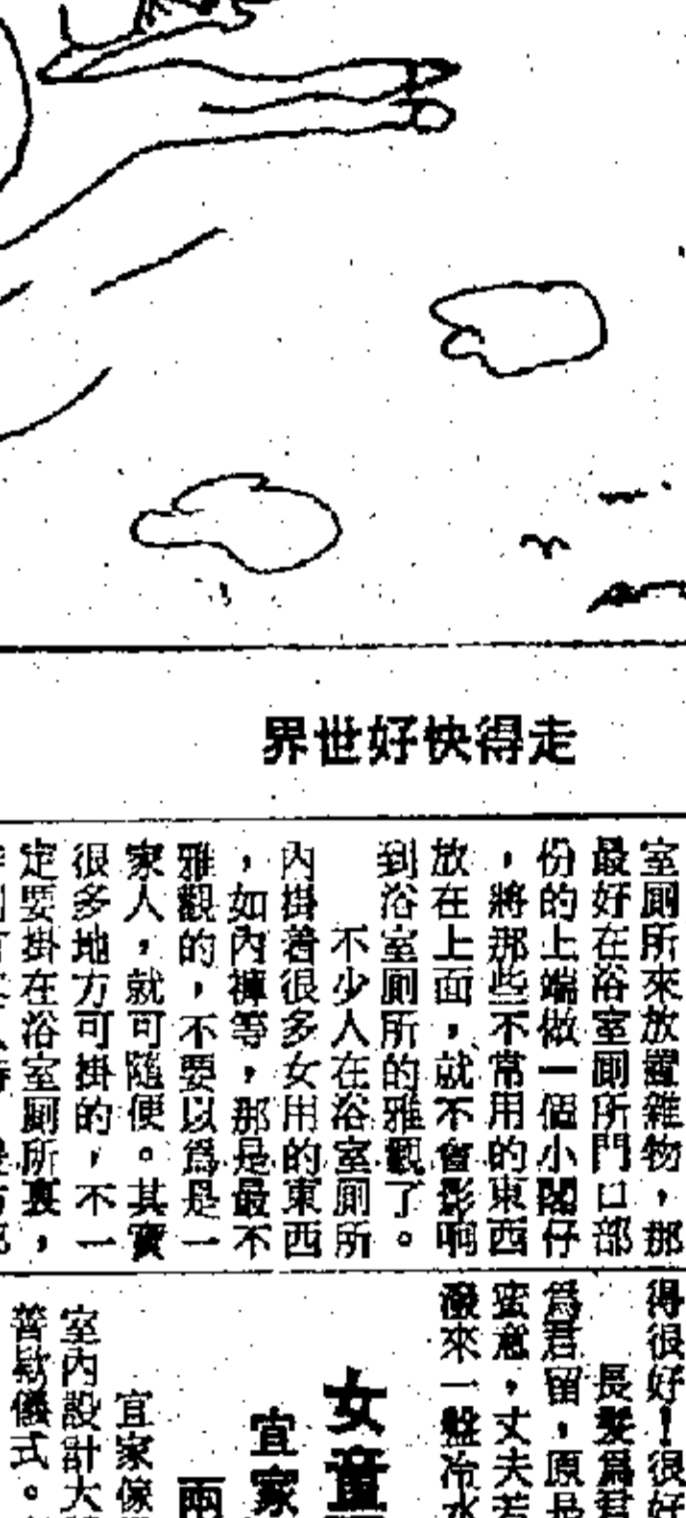 走得快好世界
室厠所來放置雜物，那
最好在浴室厠所門口部
份的上端做一個小閣仔
，將那些不常用的東西
放在上面，就不會影响
到浴室厠所的雅觀了。
不少人在浴室厠所
內掛着很多女用的東西
，如內褲等，那是最不
雅觀的，不要以爲是一
家人，就可隨便。其實
很多地方可掛的，不一
定要掛在浴室厠所裏，
得很好！很好
長髮爲君
爲君留，原是
蜜意，丈夫若
潑來一盤冷水
女童
宜家
兩
宜家傢
室內設計大
善歘儀式。